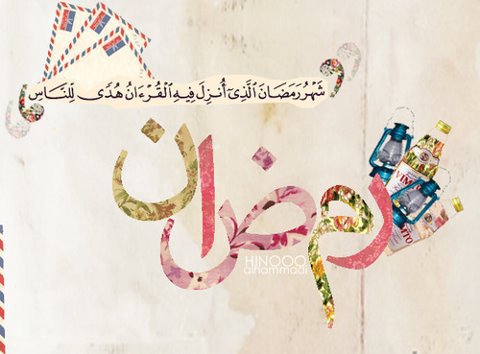 شَهْرُ رَمَضَانَ ٱلَّذِىٓ أُنزِلَ فِيهِ ٱلْقُرْءَانُ هُدًى لِّلنَّاسِ
رمضان
HINOOO
alhammadi
VIMTO
VIMTO